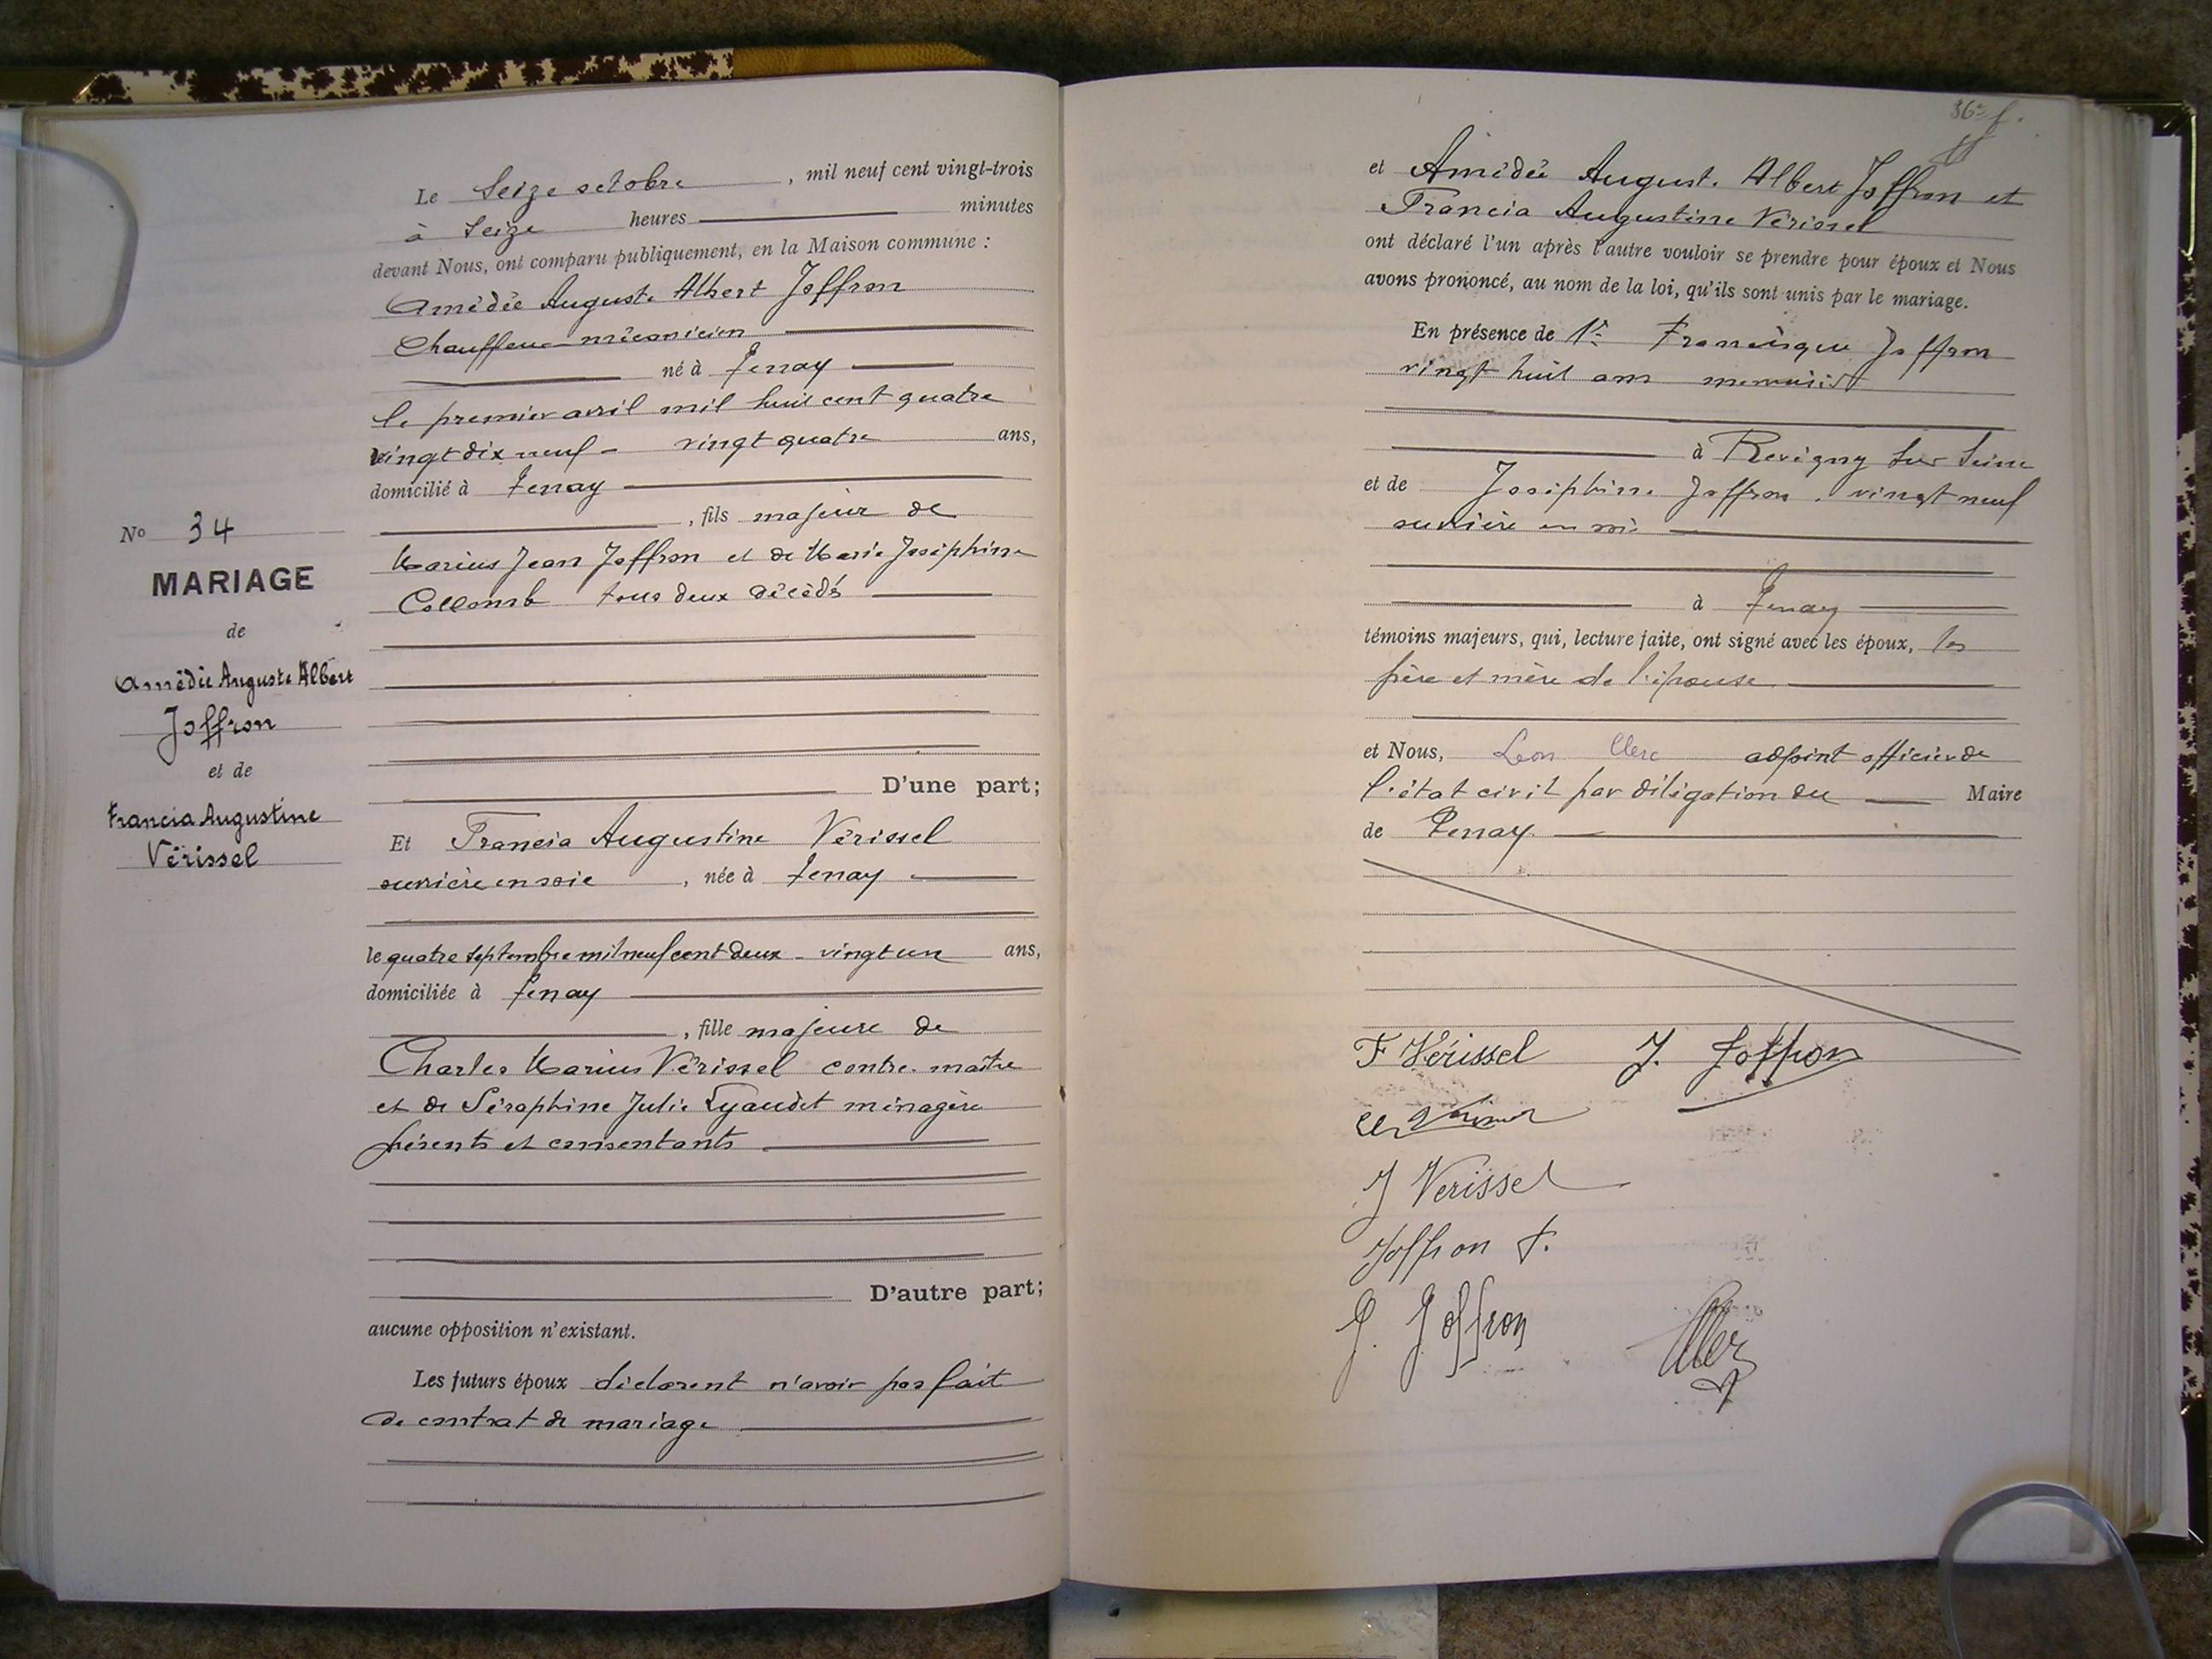 Le Seize octobre, mil neuf cent vingt-trois
à Seize heures minutes
devant Nous, ont comparu publiquement, en la Maison commune :
Amédée Auguste Albert Joffron
Chauffeur-mécanicien
né à Tenay
le premier avril mil huit cent quatre
vingt dix neuf - vingt quatre ans,
domicilié à Tenay
, fils majeur de
Marius Jean Joffron et de Marie Joséphine
Collomb tous deux décédés
D'une part;
Et Francia Augustine Vérissel
ouvrière en soie, née à Tenay
le quatre septembre mil neuf cent deux - vingt un ans,
domiciliée à Tenay
, fille majeure de
Charles Marius Vérissel contre-maître
et de Séraphine Julie Lyaudet ménagère
présents et consentants
D'autre part;
aucune opposition n'existant.
Les futurs époux déclarent n'avoir pas fait
de contrat de mariage
No 34
MARIAGE
de
Amédée Auguste Albert
Joffron
et de
Francia Augustine
Vérissel
36e f.
et Amédée Auguste Albert Joffron et
Francia Augustine Vérissel
ont déclaré l'un après l'autre vouloir se prendre pour époux et Nous
avons prononcé, au nom de la loi, qu'ils sont unis par le mariage.
En présence de 1° Francisque Joffron
vingt huit ans menuisier
à Revigny sur Seine
et de Joséphine Joffron, vingt neuf
ouvrière en soie
à Tenay
témoins majeurs, qui, lecture faite, ont signé avec les époux, les
père et mère de l'épouse
et Nous, Leon Clerc adjoint officier de
l'état civil par délégation du Maire
de Tenay
F Vérissel J. Joffron
J Verissel
Joffron F.
J. Joffron